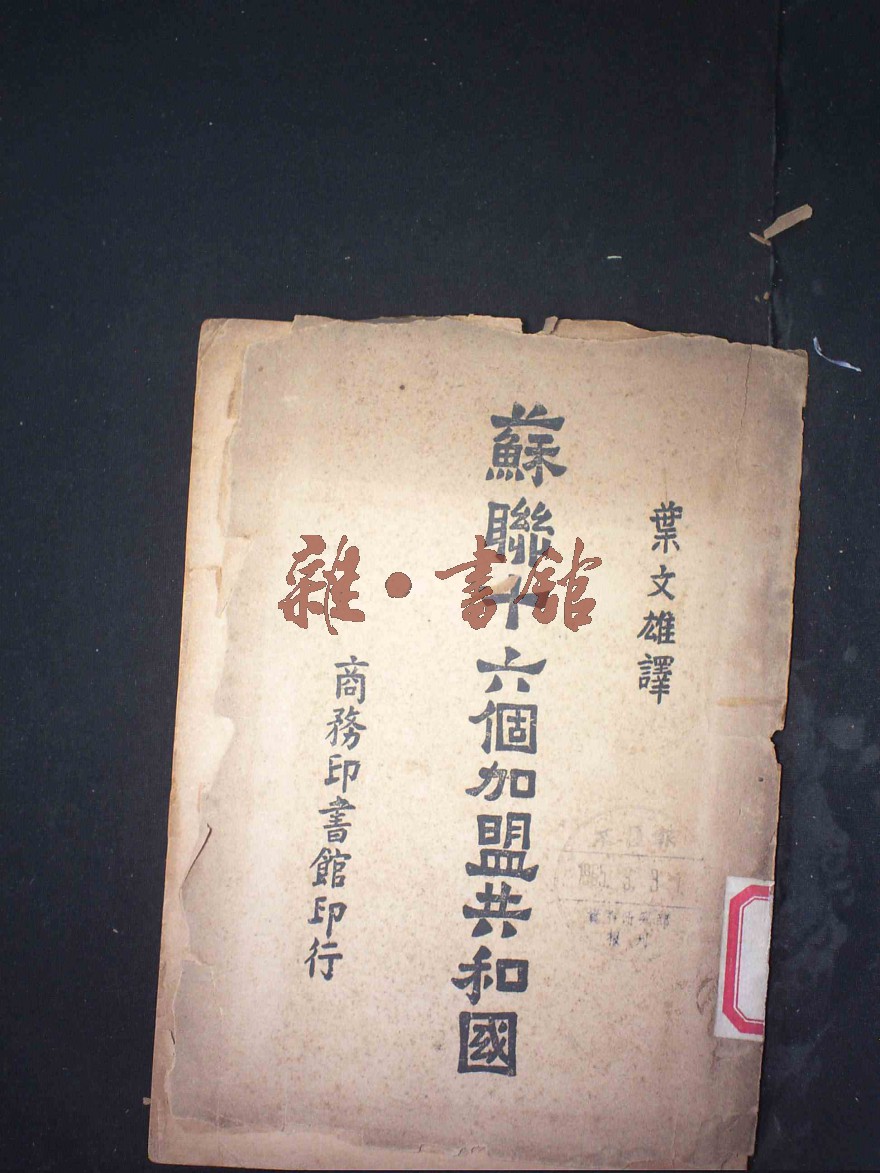 葉文雄譯
蘇聯十六個加盟共和國
商務印書館印行
雜·書館